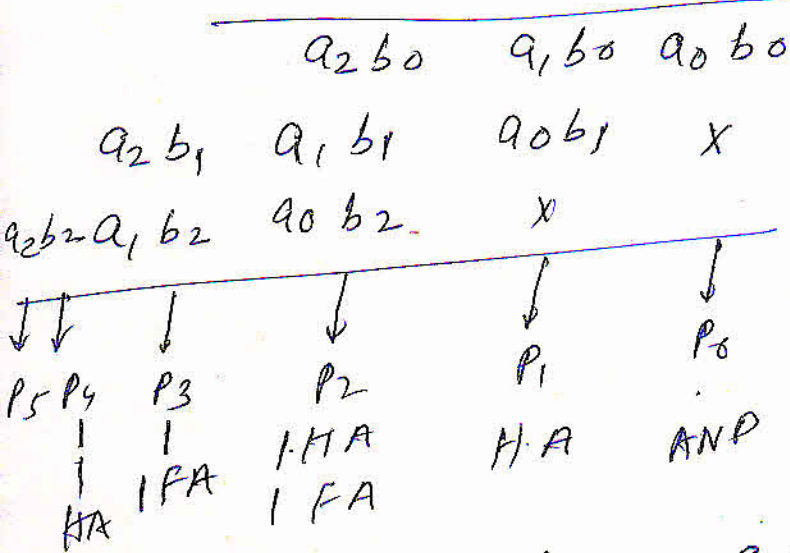 a2 b0 a1 b0 a0 b0
a2 b1 a1 b1 a0 b1 X
a2b2 a1 b2 a0 b2 X
P5 P4 P3 P2 P1 P0
HA 1 FA 1.HA H.A AND
1 FA